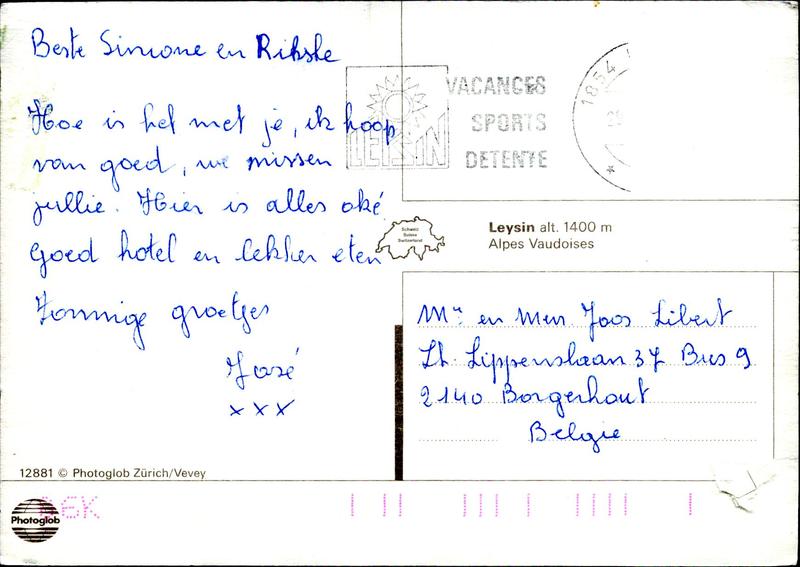 Beste Simone en Rikske
Hoe is het met je, ik hoop
van goed, we missen
jullie. Hier is alles oké
Goed hotel en lekker eten
Zonnige groetjes
José
x x x
LEYSIN
VACANCES
SPORTS
DETENTE
1854
Schweiz
Suisse
Switzerland
Leysin alt. 1400 m
Alpes Vaudoises
Mr en Mevr Joos Libert
Lt. Lippenslaan 37 Bus 9
2140 Borgerhout
Belgie
12881 © Photoglob Zürich/Vevey
Photoglob